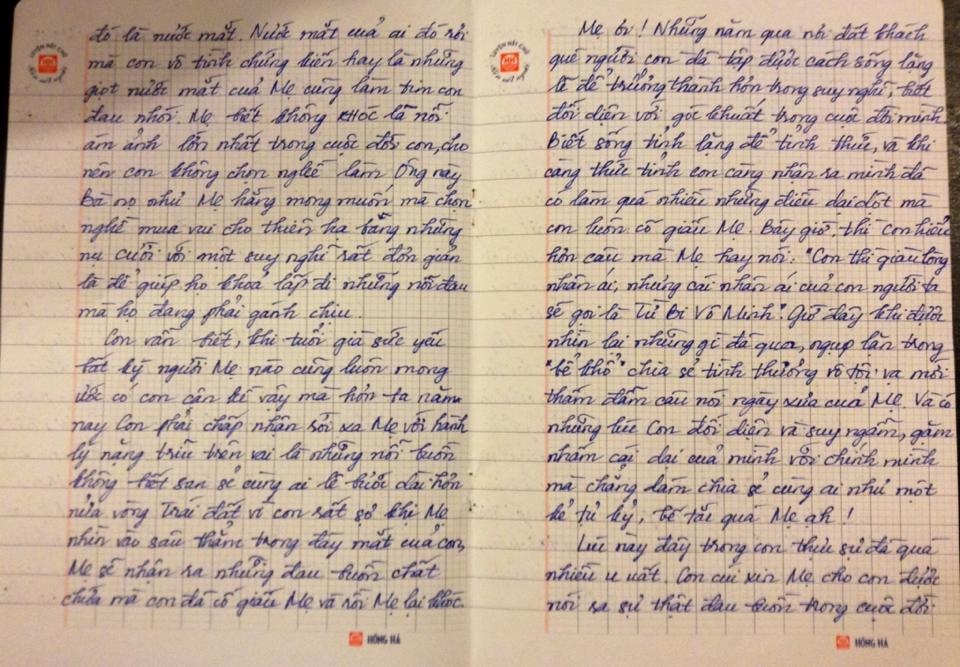 đó là nước mắt. Nước mắt của ai đó rồi
mà con vô tình chứng kiến hay là những
giọt nước mắt của Mẹ cũng làm tim con
đau nhói. Mẹ biết không KHÓC là nỗi
ám ảnh lớn nhất trong cuộc đời con, cho
nên con không chọn nghề làm, Ông này
Bà nọ như Mẹ hằng mong muốn mà chọn
nghề mua vui cho thiên hạ bằng những
nụ cười với một suy nghĩ rất đơn giản
là để giúp họ khỏa lấp đi những nỗi đau
mà họ đang phải gánh chịu.
Con vẫn biết, khi tuổi già sức yếu
bất kỳ người Mẹ nào cũng luôn mong
ước có con cận kề vậy mà hơn ta năm
nay Con phải chấp nhận rời xa Mẹ với hành
lý nặng trĩu trên vai là những nỗi buồn
không biết san sẻ cùng ai lê bước dài hơn
nửa vòng Trái đất vì con rất sợ khi Mẹ
nhìn vào sâu thẳm trong đáy mắt của con,
Mẹ sẽ nhận ra những đau buồn chất
chứa mà con đã cố giấu Mẹ và rồi Mẹ lại khóc.
HỒNG HÀ
Mẹ ơi! Những năm qua nơi đất khách
quê người con đã tập được cách sống lặng
lẽ để trưởng thành hơn trong suy nghĩ, biết
đối diện với góc khuất trong cuộc đời mình
Biết sống tĩnh lặng để tỉnh thức, và khi
càng thức tỉnh con càng nhận ra mình đã
có làm quá nhiều những điều dại dột mà
con luôn cố giấu Mẹ. Bây giờ, thì con hiểu
hơn câu mà Mẹ hay nói: "Con thì giàu lòng
nhân ái, nhưng cái nhân ái của con người ta
sẽ gọi là Từ Bi Vô Minh". Giờ đây khi được
nhìn lại những gì đã qua, ngụp lặn trong
"bể khổ" chia sẻ tình thương vô tội vạ mới
thấm đẫm câu nói ngày xưa của Mẹ. Và có
những lúc Con đối diện và suy ngẫm, gặm
nhấm cái dại của mình với chính mình
mà chẳng dám chia sẻ cùng ai như một
kẻ tự kỷ, bế tắc quá Mẹ ah!
Lúc này đây trong con thực sự đã quá
nhiều u uất. Con cúi xin Mẹ cho con được
nói ra sự thật đau buồn trong cuộc đời
HỒNG HÀ